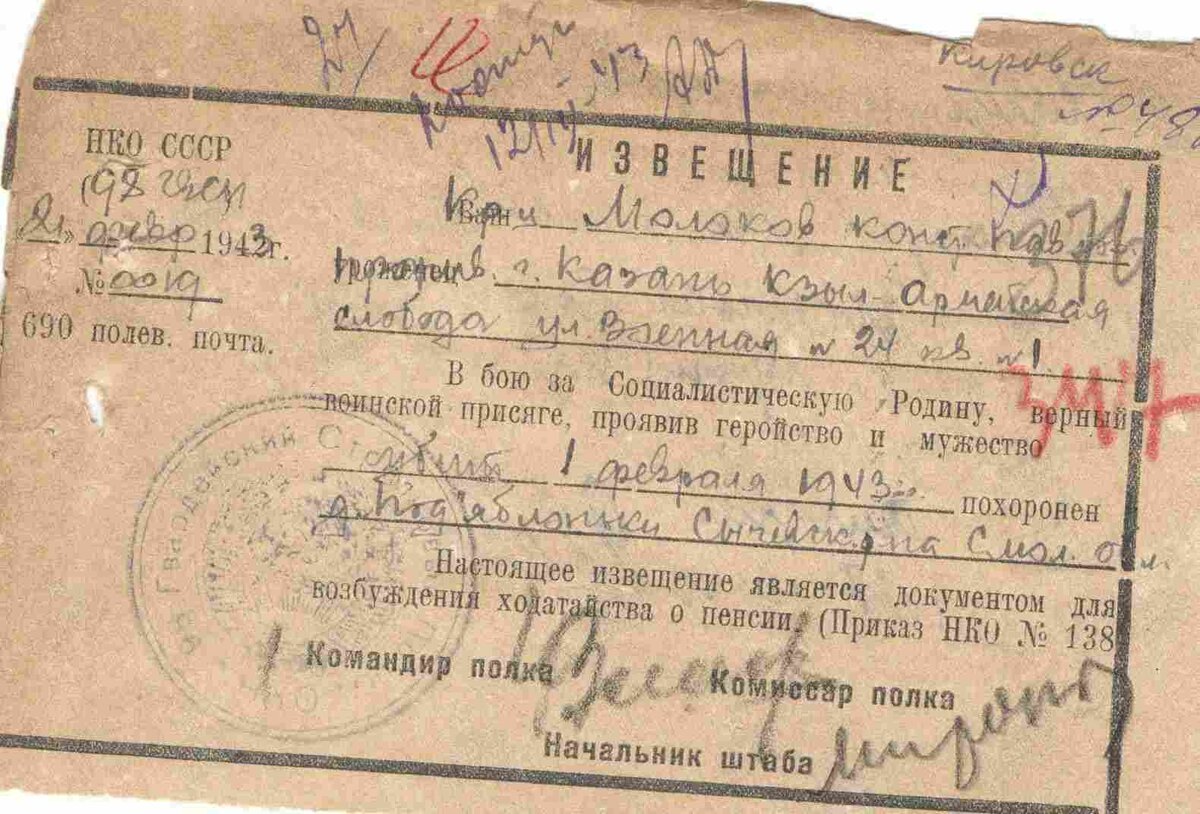 Кировск
12/IV-43
ИЗВЕЩЕНИЕ
НКО СССР
21» февр 1943г.
№ 0019
690 полев. почта.
Кр-ц Молоков Конст. Пав
уроженец г. Казань Кзыл-Армейская
слобода ул. Военная № 24 кв. № 1
В бою за Социалистическую Родину, верный
воинской присяге, проявив геройство и мужество
убит 1 февраля 1943 похоронен
д. Подъяблоньки Сычевск. р-на Смол. обл.
Настоящее извещение является документом для
возбуждения ходатайства о пенсии (Приказ НКО № 138
Командир полка
Комиссар полка
Начальник штаба
Гвардейский